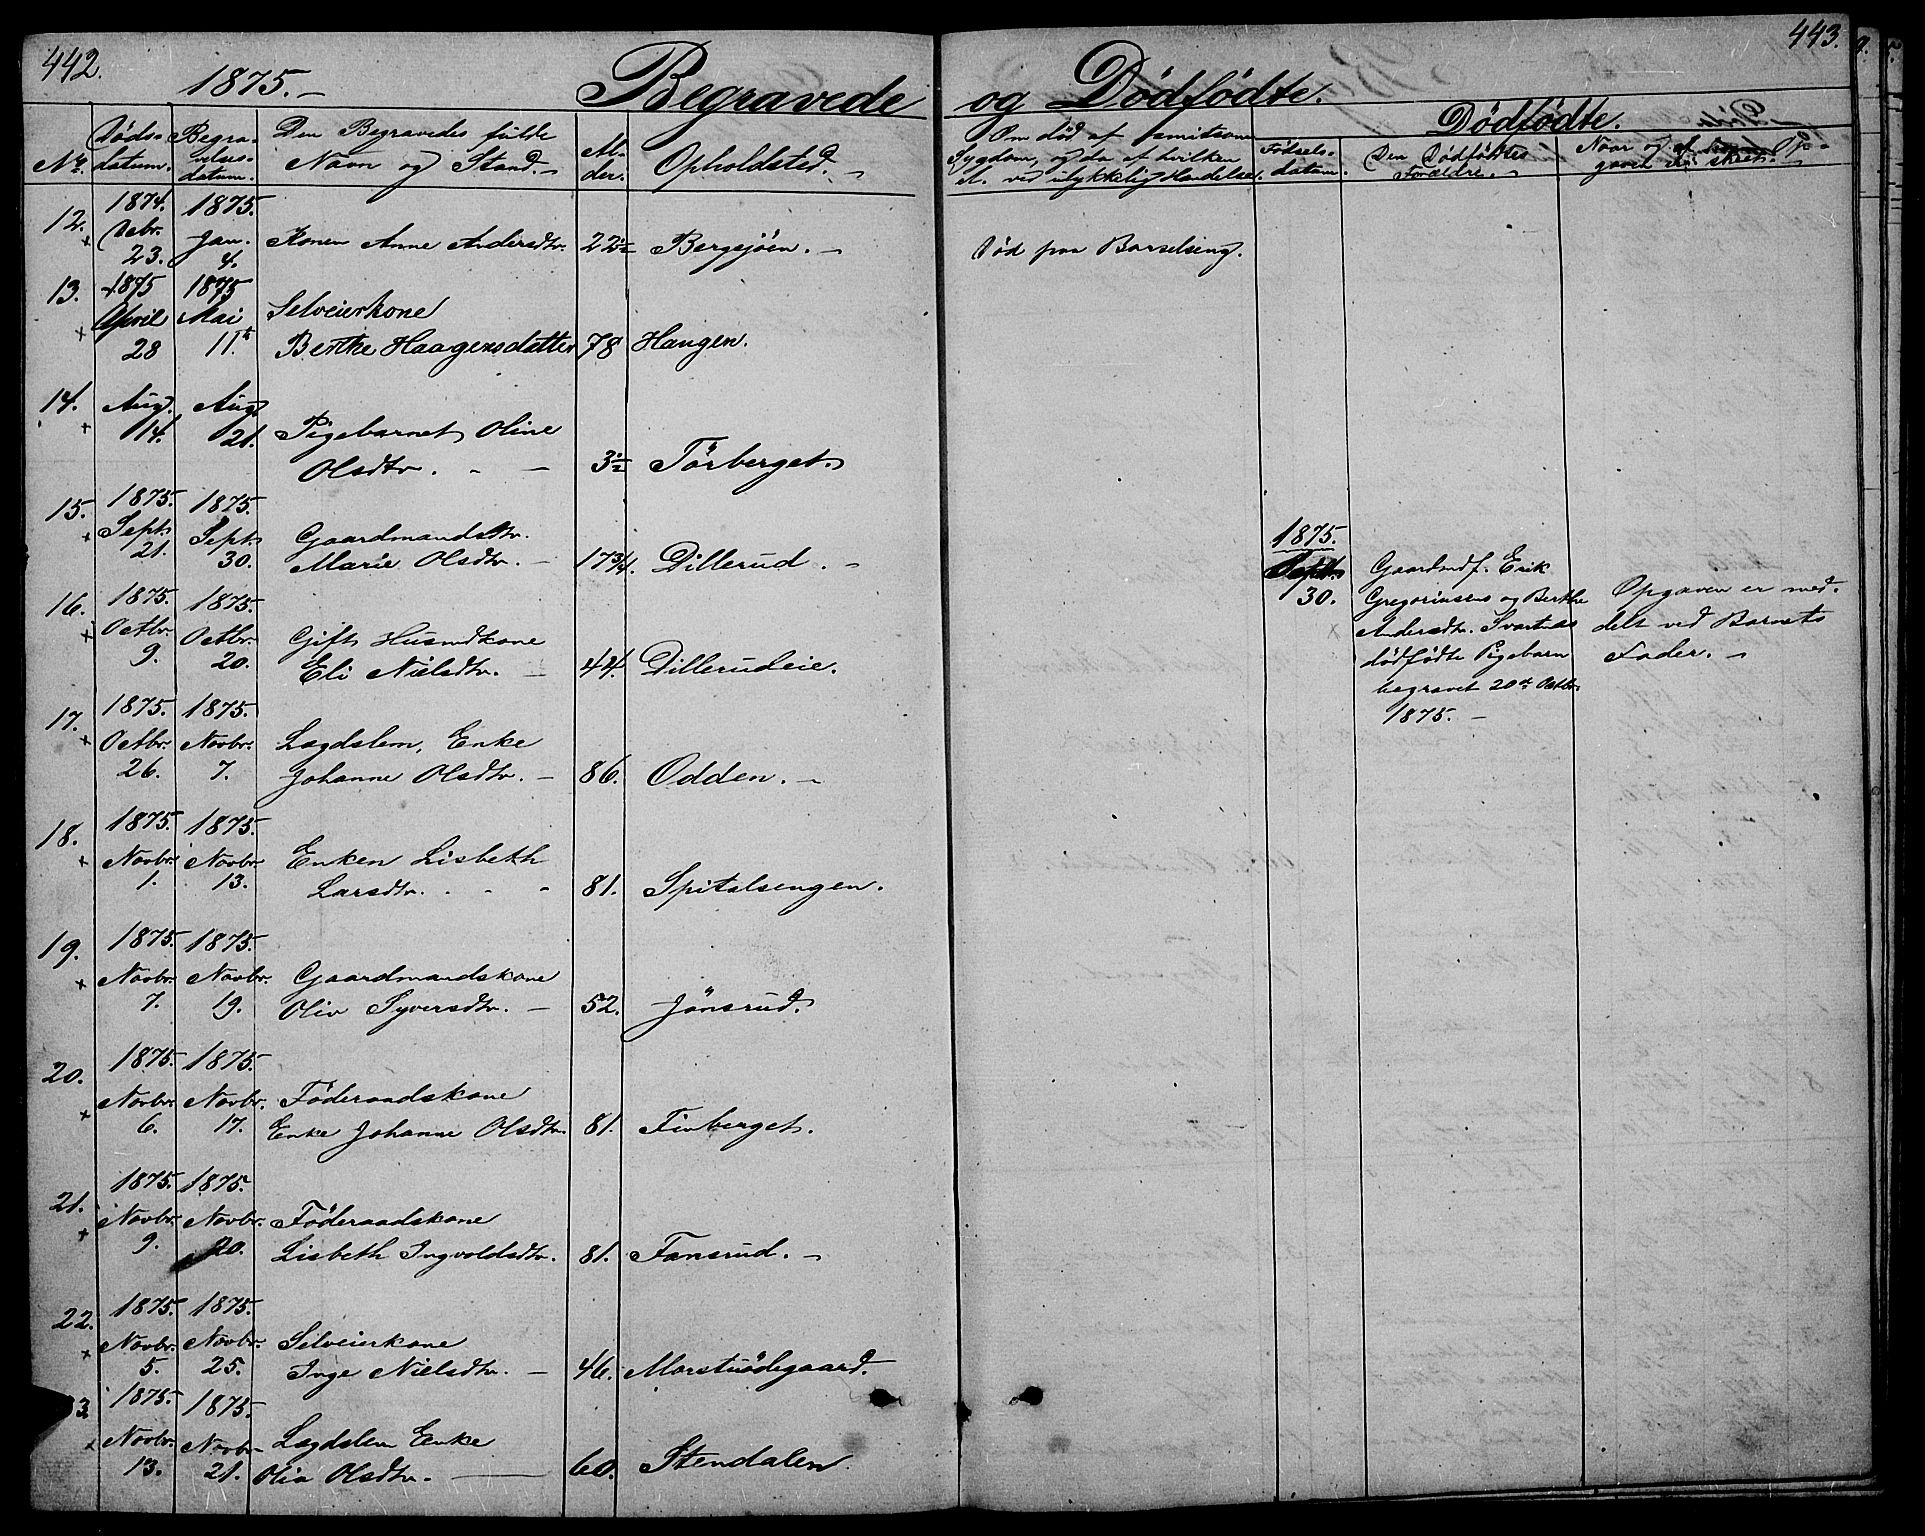 442.
1875.-
Begravede
og Dødfødte.
443.
No.
Døds-
datum.
Begra-
velses-
datum.
Den Begravedes fulde
Navn og Stand.-
Al-
der.
Opholdsted.-
Om død af smitsom
Sygdom, og da af hvilken
el. ved ulykkelig Hændelse.
Dødfødte.
Fødsels-
datum.
Den Dødfødtes
Forældre.-
Naar og
12.
1874. 1875.
Debr. Jan.
23. 4.
Konen Anne Andersdtr. 22½ Bergsjøen.-
Død paa Barselseng.
13. 1875 1875
April Mai Selveierkone
28 11te Berthe Haagensdatter 78 Haugen.
14. Aug. Aug.
14. 21. Pigebarnet Oline
Olsdtr. - - 3½ Tørberget.
15. 1875. 1875.
Sept. Sept. Gaardmandsdtr.
21. 30. Marie Olsdtr.- 17¾. Dillerud.-
1875.
Sept.
30.
Gaardmdf. Erik
Gregoriusens og Berthe
Andersdtr. Svartnæs
dødfødte Pigebarn
begravet 20de Octbr.
1875.-
Opgaven er med-
delt ved Barnets
Fader.-
16. 1875. 1875.
Octbr. Octbr. Gift Husmdkone
9. 20. Eli Nielsdtr.- 44. Dillerudeie.
17. 1875. 1875.
Octbr. Novbr. Lægdslem, Enke
26. 7. Johanne Olsdtr.- 86. Odden.-
18. 1875. 1875.
Novbr. Novbr. Enken Lisbeth
1. 13. Larsdtr. - - 81. Spitalsengen.
19. 1875. 1875.
Novbr. Novbr. Gaardmandskone
7. 19. Oliv Syversdtr.- 52. Jønsrud.
20. 1875. 1875.
Novbr. Novbr. Føderaadskone
6. 17. Enke Johanne Olsdtr. 81. Finberget.
21. 1875. 1875.
Novbr. Novbr. Føderaadskone
9. 20. Lisbeth Ingvoldsdtr. 81. Fansrud.-
22. 1875. 1875.
Novbr. Novbr. Selveierkone
5. 25. Inge Nielsdtr.- 46. Morstuødegaard.
3 1875. 1875.
Novbr. Novbr. Lægdslem Enke
13. 21. Olia Olsdtr.- 60. Stendalen.